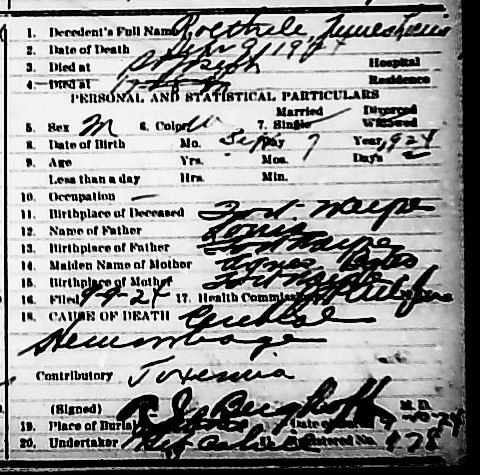 1. Decedent's Full Name
2. Date of Death Sept 9, 1924
3. Died at St Joseph Hospital
4. Died at Residence
PERSONAL AND STATISTICAL PARTICULARS
Married Divorced
5. Sex M 6. Color W 7. Single Widowed
8. Date of Birth Mo. Sept Day 9 Year, 1924
9. Age Yrs. Mos. Days
Less than a day Hrs. Min.
10. Occupation —
11. Birthplace of Deceased Fort Wayne
12. Name of Father Louis
13. Birthplace of Father Fort Wayne
14. Maiden Name of Mother Agnes
15. Birthplace of Mother Fort Wayne
16. Filed 9-9-24 17. Health Commissioner
18. CAUSE OF DEATH Cerebral
Hemorrhage
Contributory Toxemia
(Signed) R. J. Berghoff M. D.
19. Place of Burial Date of
20. Undertaker Registered No. 478